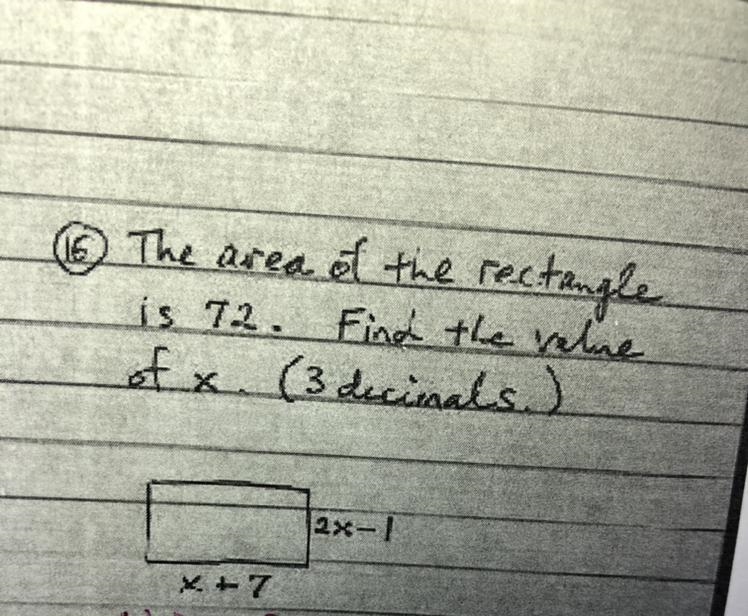 16 The area of the rectangle
is 72. Find the value
of x. (3 decimals.)
2x-1
x+7